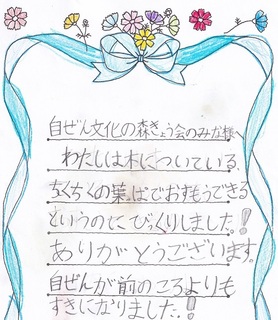 自ぜん文化の森きょう会のみな様へ
わたしは木についている、
ちくちくの葉っぱでおすもうできる
というのにびっくりしました!
ありがとうございます。
自ぜんが前のころよりも
すきになりました!